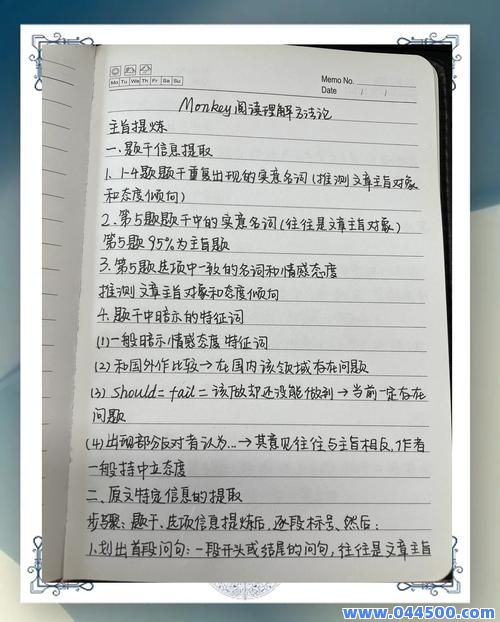 Mo Tu We Th Fr Sa Su
Memo No.
Date / /
Monkey阅读理解方法论
主旨提炼
一、题干信息提取
1、1-4题题干重复出现的实意名词(推测文章主旨对象
和态度倾向)
2、第5题题干中的实意名词(往往是文章主旨对象)
第5题95%为主旨题
3、第5题选项中一致的名词和情感态度
推测文章主旨对象和态度倾向
4、题干中暗示的特征词
(1)一般暗示情感态度特征词
(2)和国外作比较→在国内该领域存在问题
(3) should = fail = 该做却还没能做到→当前一定存在
问题
(4)出现部分反对者认为...→其意见往往与主旨相反,作者
一般持中立态度
二、原文特定信息的提取
步骤:题干、选项信息提炼后,逐段标号、然后:
1、划出首段问句:一段开头或结尾的问句,往往是文章主旨
www.044500.com